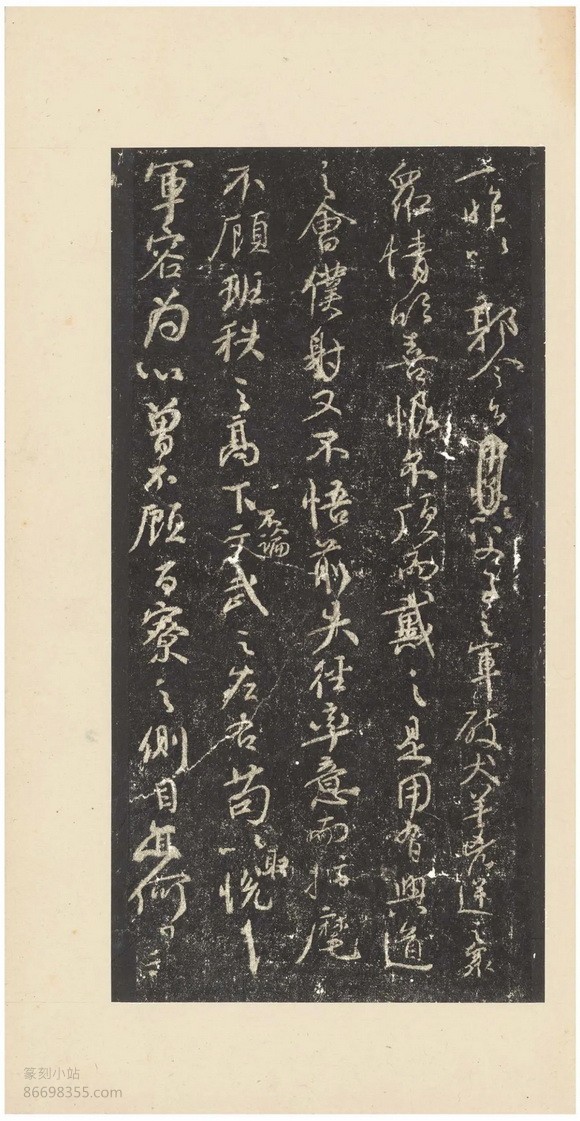 一昨以郭令公以父子之軍破犬羊凶逆之衆
衆情欣喜恨不頂而戴之是用有興道
之會僕射又不悟前失徑率意而指麾
不顧班秩之高下不論文武之左右苟以取悦
軍容為心曾不顧百寮之側目亦何異
篆刻小站
86698355.com